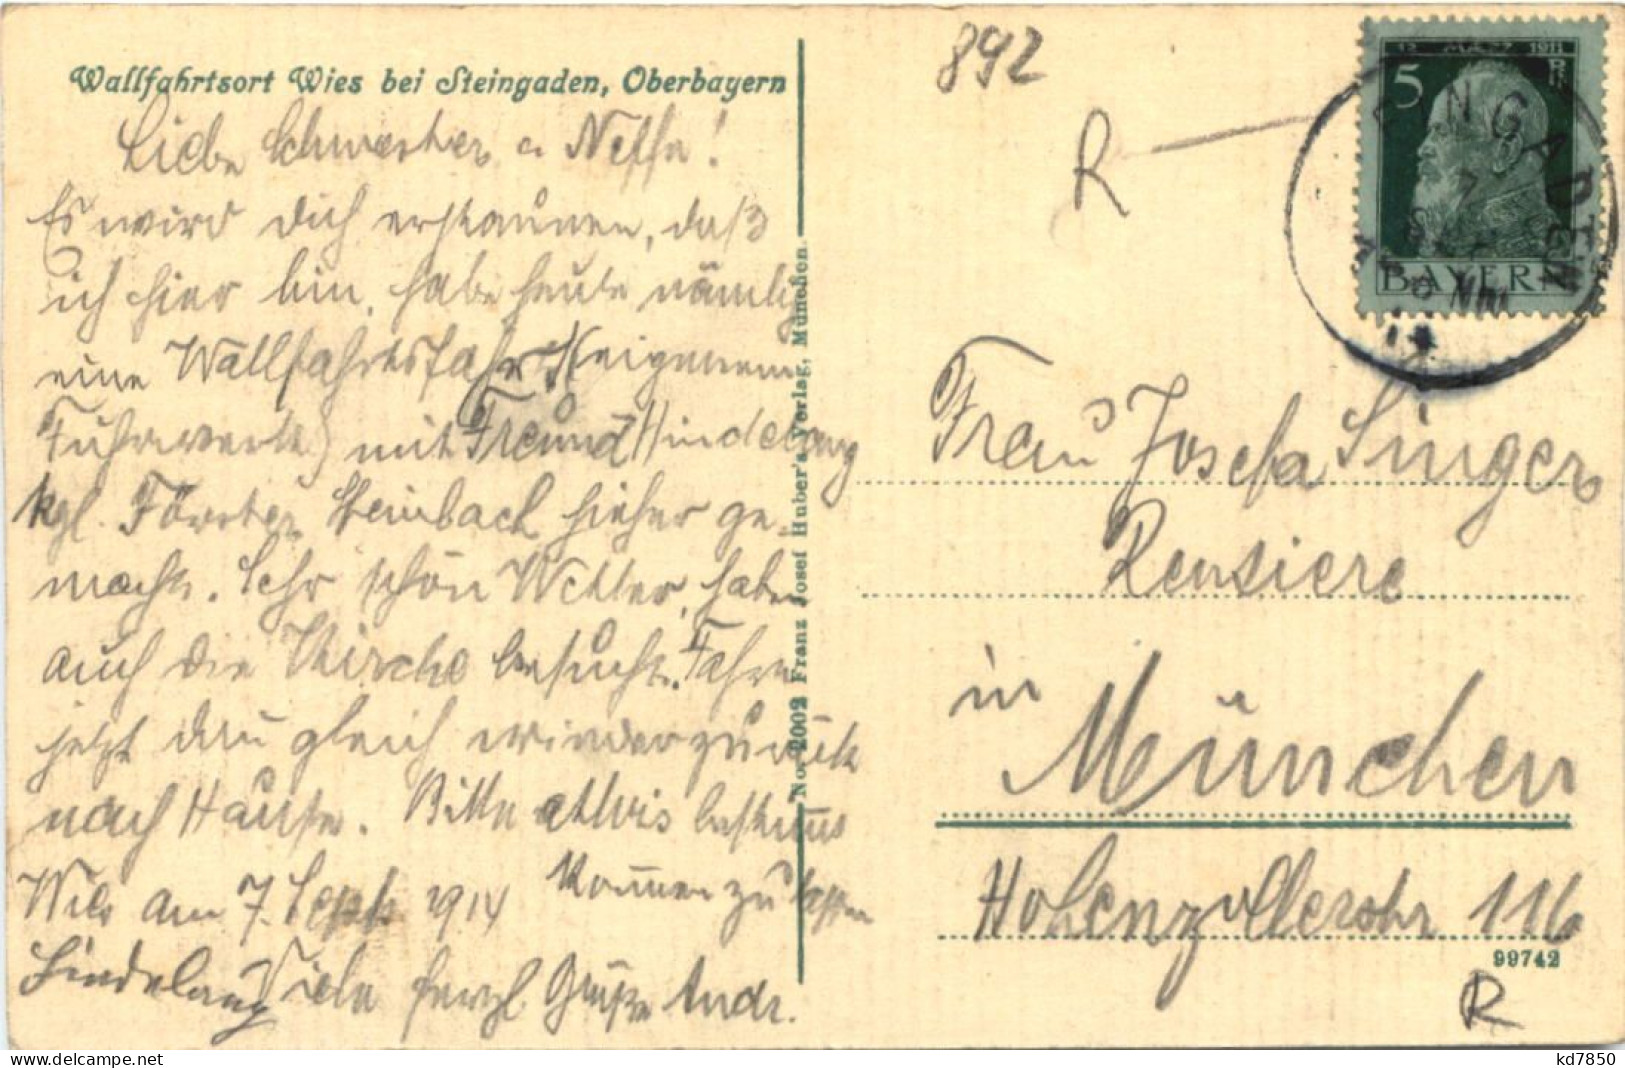 Wallfahrtsort Wies bei Steingaden, Oberbayern
Liebe Schwester u. Neffe!
Es wird dich erstaunen, daß
ich hier bin, habe heute nämlich
eine Wallfahrtsfahrt (eigenem
Fuhrwerke) mit Freund Hindelang
kgl. Förster Steinbach hieher ge-
macht. Sehr schön Wetter, habe
auch die Kirche besucht. Fahre
jetzt dan gleich wieder zurück
nach Hause. Bitte etwas
kommen zu lassen
Wies am 7. Sept. 1914
Hindelang Viele herzl Grüße Andr.
No. 2002 Franz Josef Huber's Verlag, München.
892
R
5 1911
BAYERN
Frau Josefa Singer
Rentiere
in
München
Hohenzollerstr 116
99742
R
kd7850